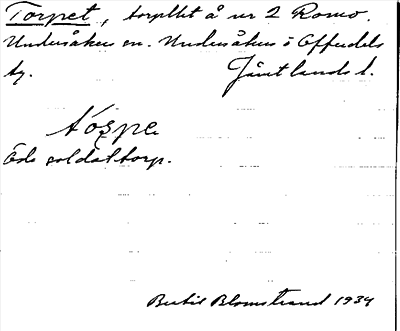 Torpet, torpllt å nr 2 Romo.
Undersåkers sn. Undersåkers o Offerdals
tg. Jämtlands l.
tǫspe
Öde soldattorp.
Bertil Blomstrand 1934